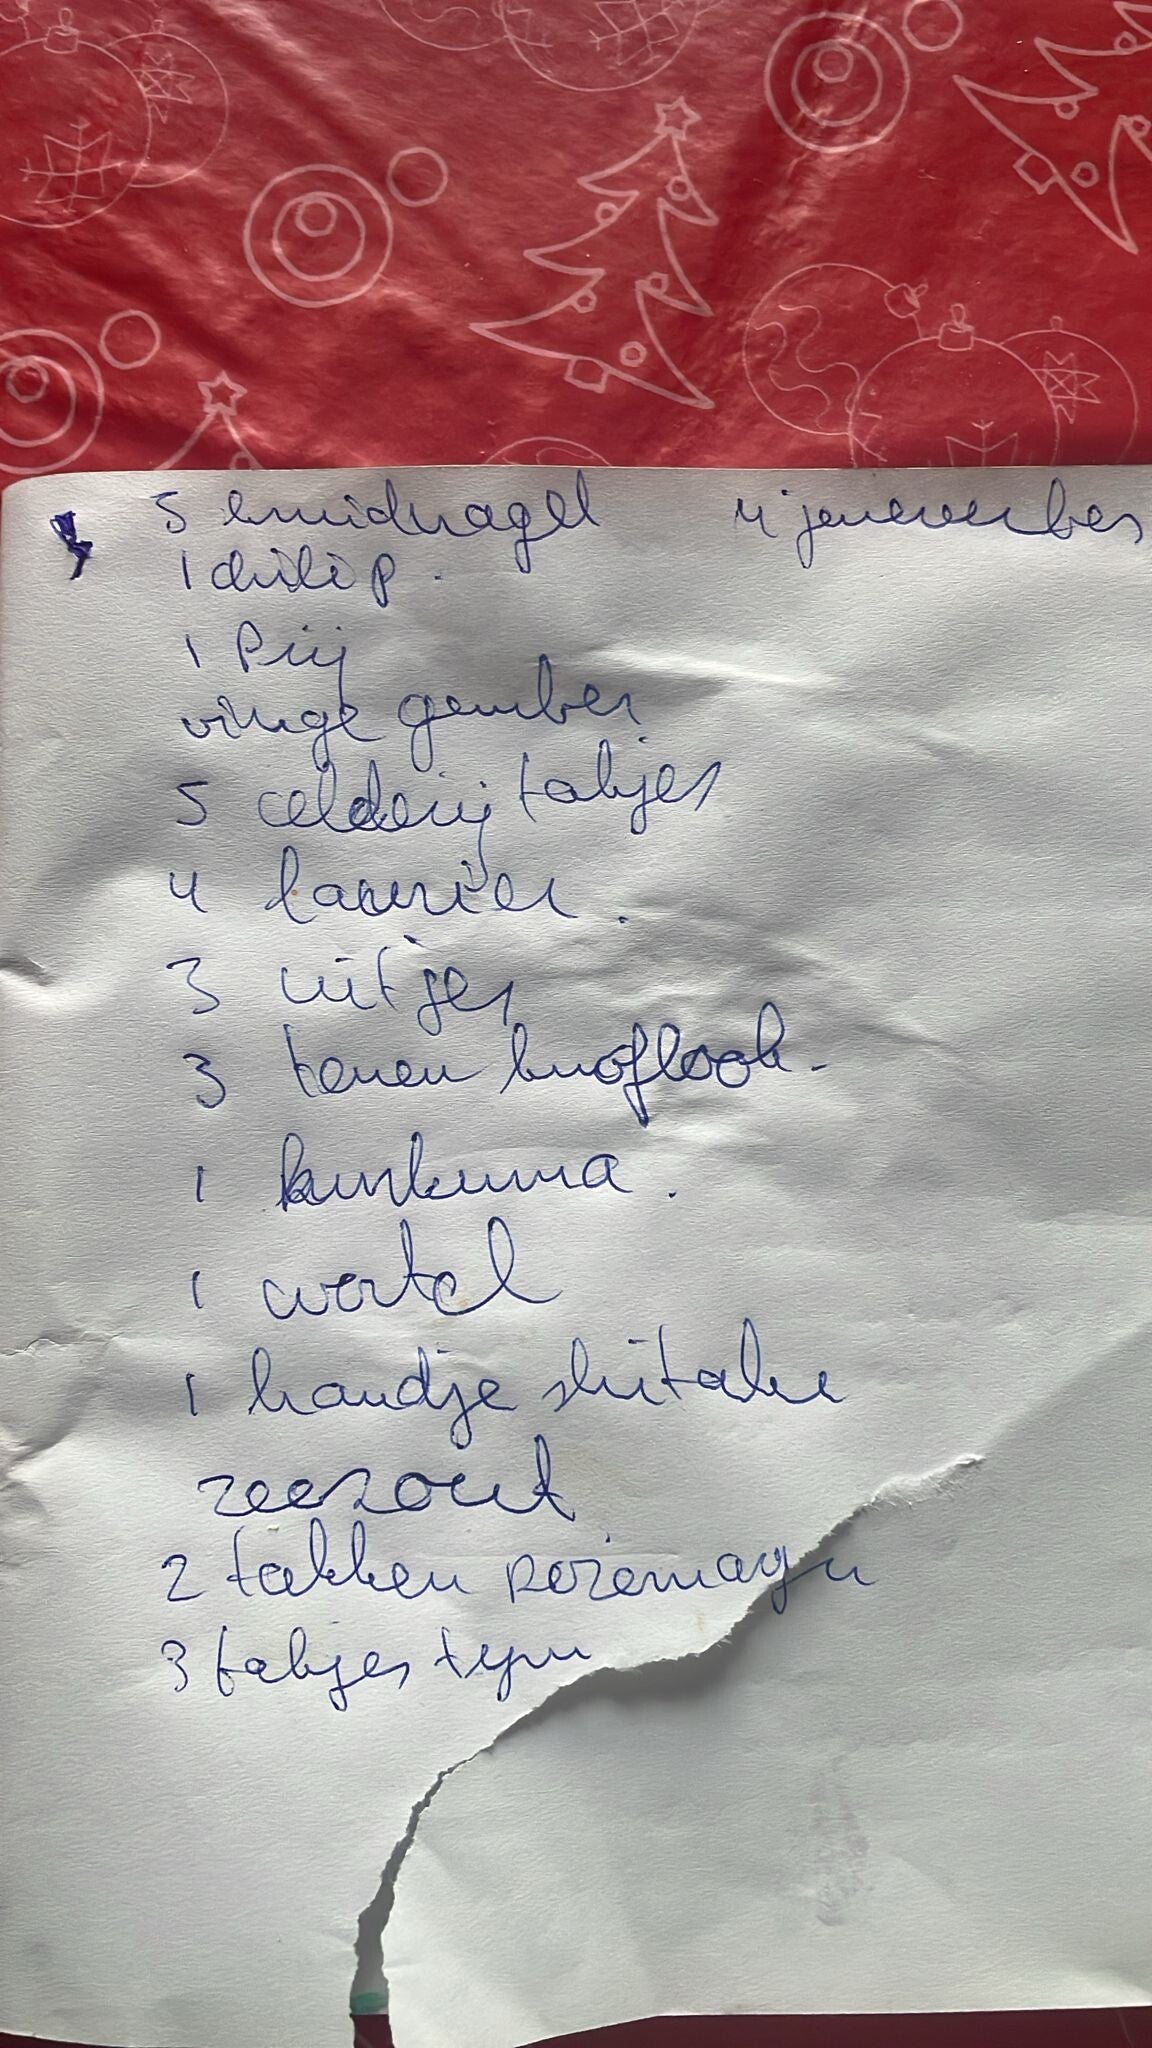 5 kruidnagel 4 jeneverbes
1 chili p.
1 Prij
vinge gember
5 celderij takjes
4 laurier.
3 uitjes
3 tenen knoflook.
1 kurkuma.
1 wortel
1 handje shitake
zeezout
2 takken rozemarijn
3 takjes tijm